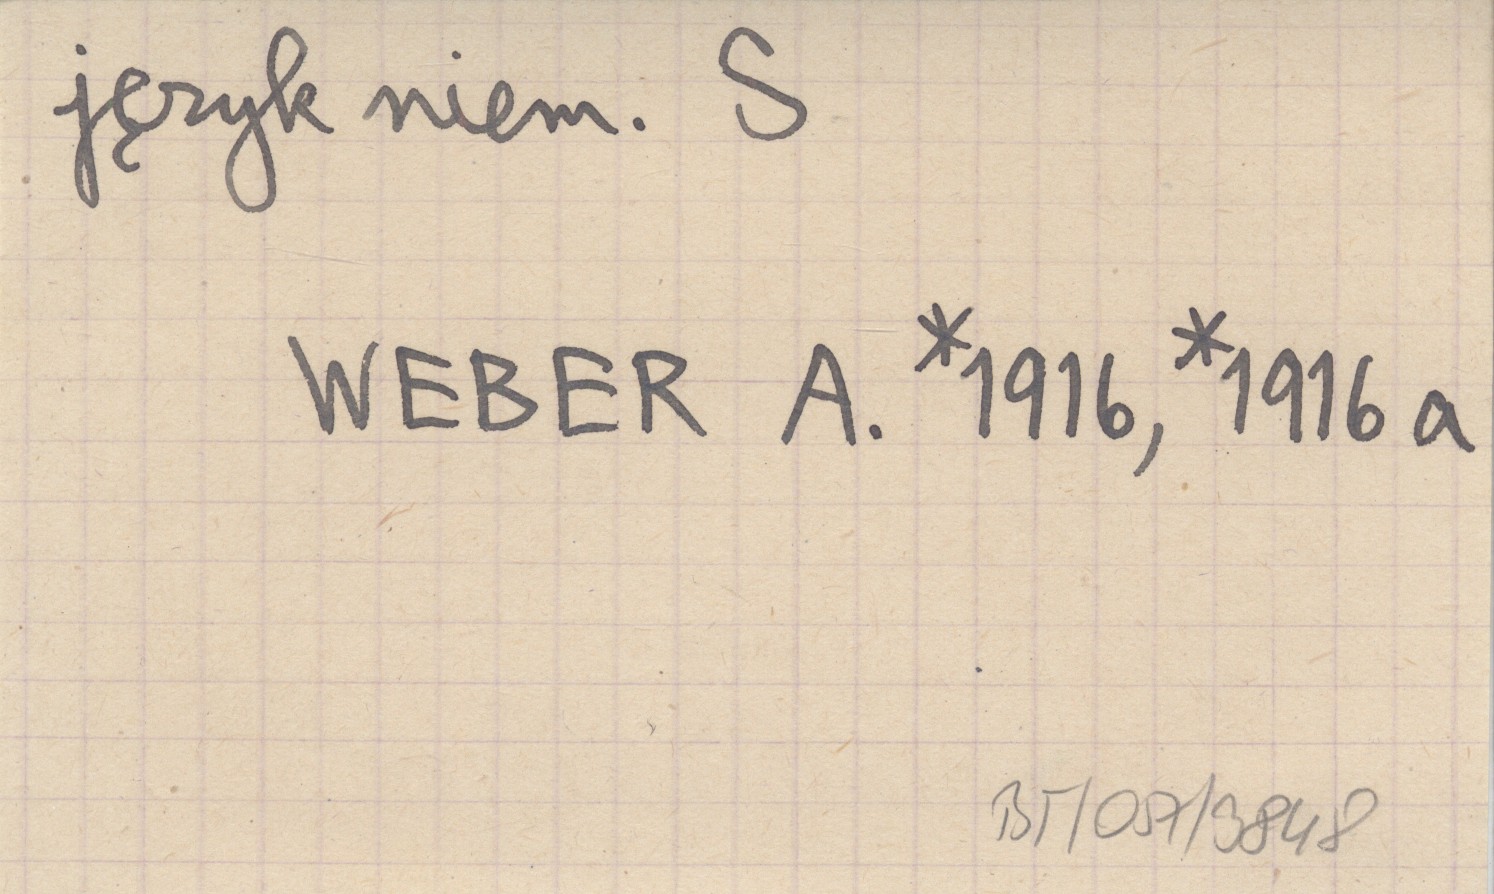 język niem. S
WEBER A. *1916, *1916 a
BT/057/9848